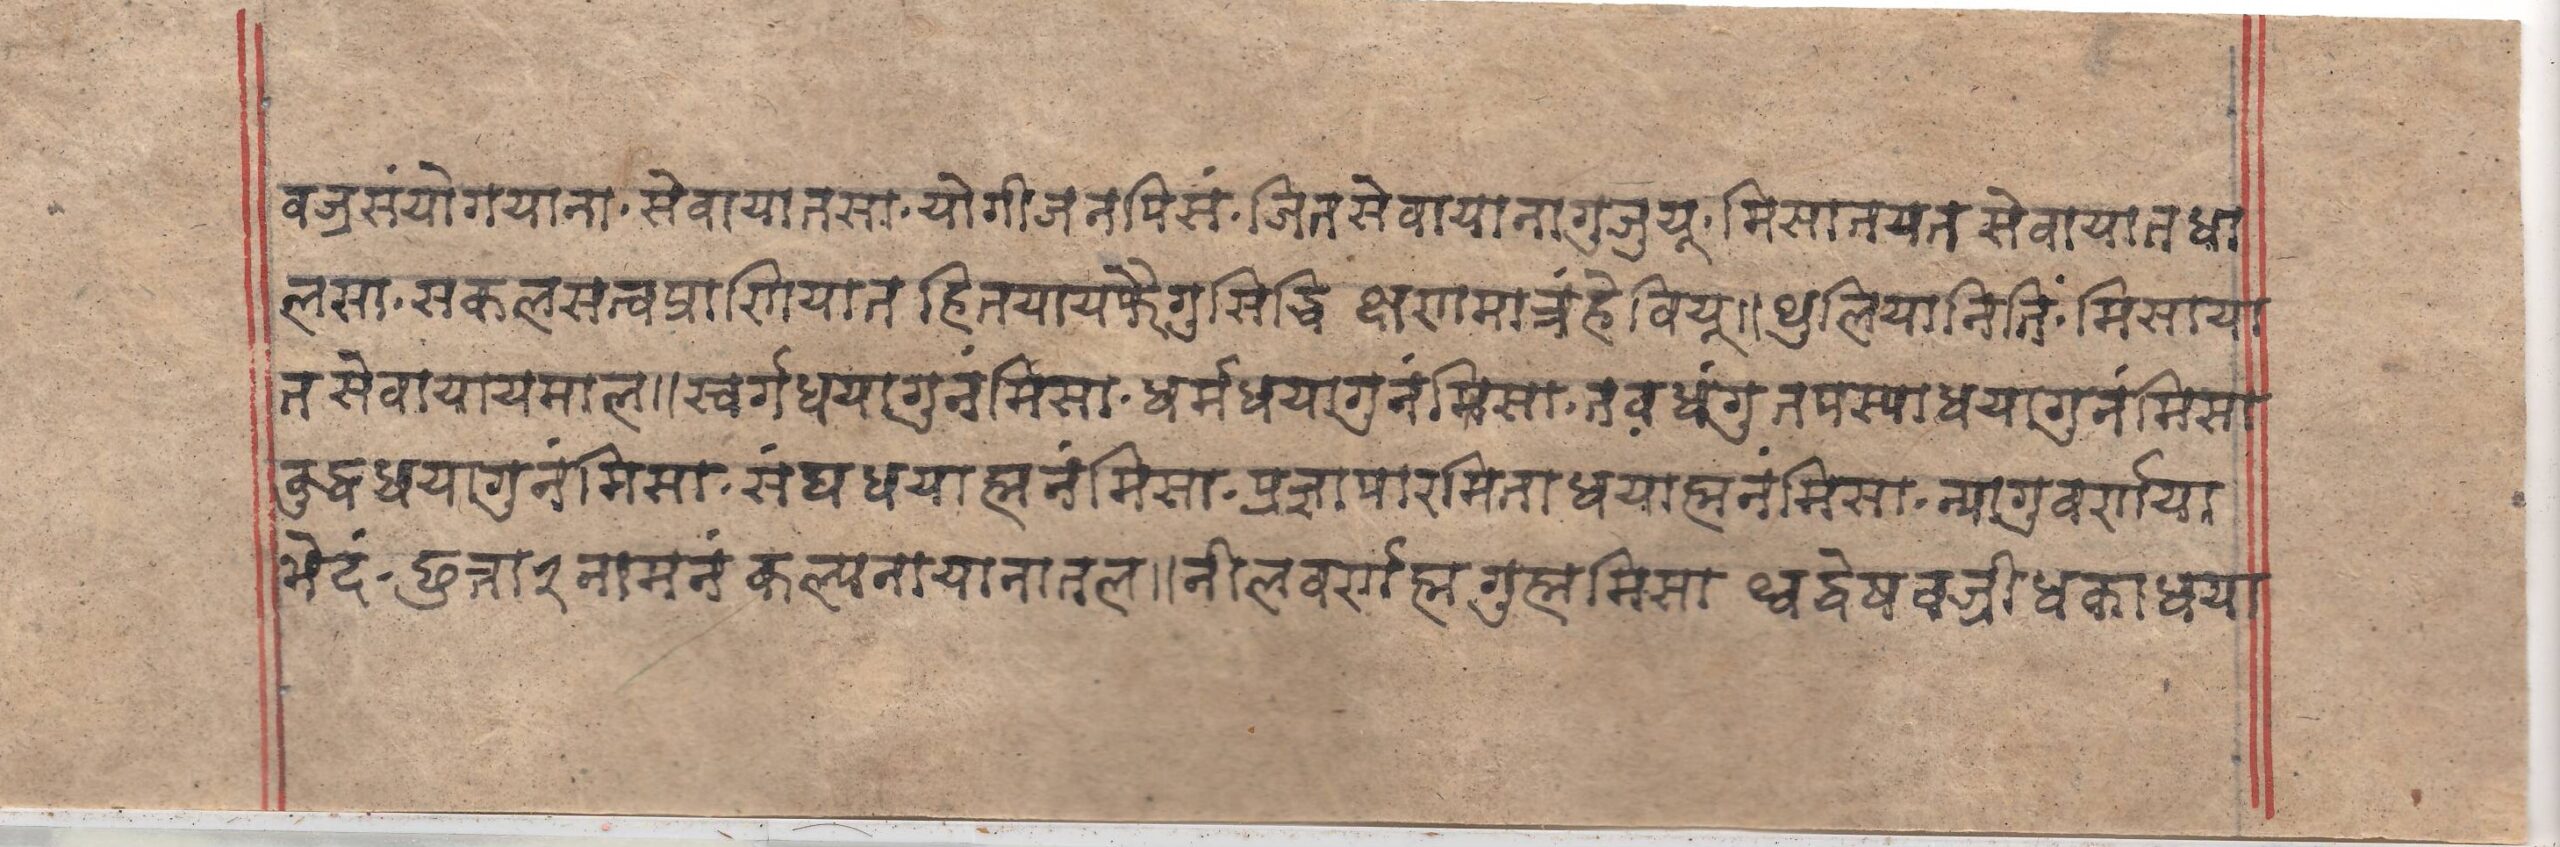 वज्रसंयोगयाना· सेवायातसा· योगीजनपिसं· जितसेवायानागुजुयू· मिसातयत सेवायातधा
लसा· सकलसत्वप्राणियात हितयायफैगुसिद्धि क्षणमात्रंहे वियू॥ थुलियानितिं· मिसाया
त सेवायायमाल॥ स्वर्गधयागुनंमिसा· धर्मधयागुनंमिसा· तवधंगु तपस्याधयागुनंमिसा
बुद्धधयागुनंमिसा· संघधयाह्मनंमिसा· प्रज्ञापारमिताधयाह्मनंमिसा· न्यागुवर्णया
भेदं· छुत्ता२ नामनं कल्पनायानातल॥ नीलवर्णह्म गुह्ममिसा थ्वद्वेषवज्रीधकाधया